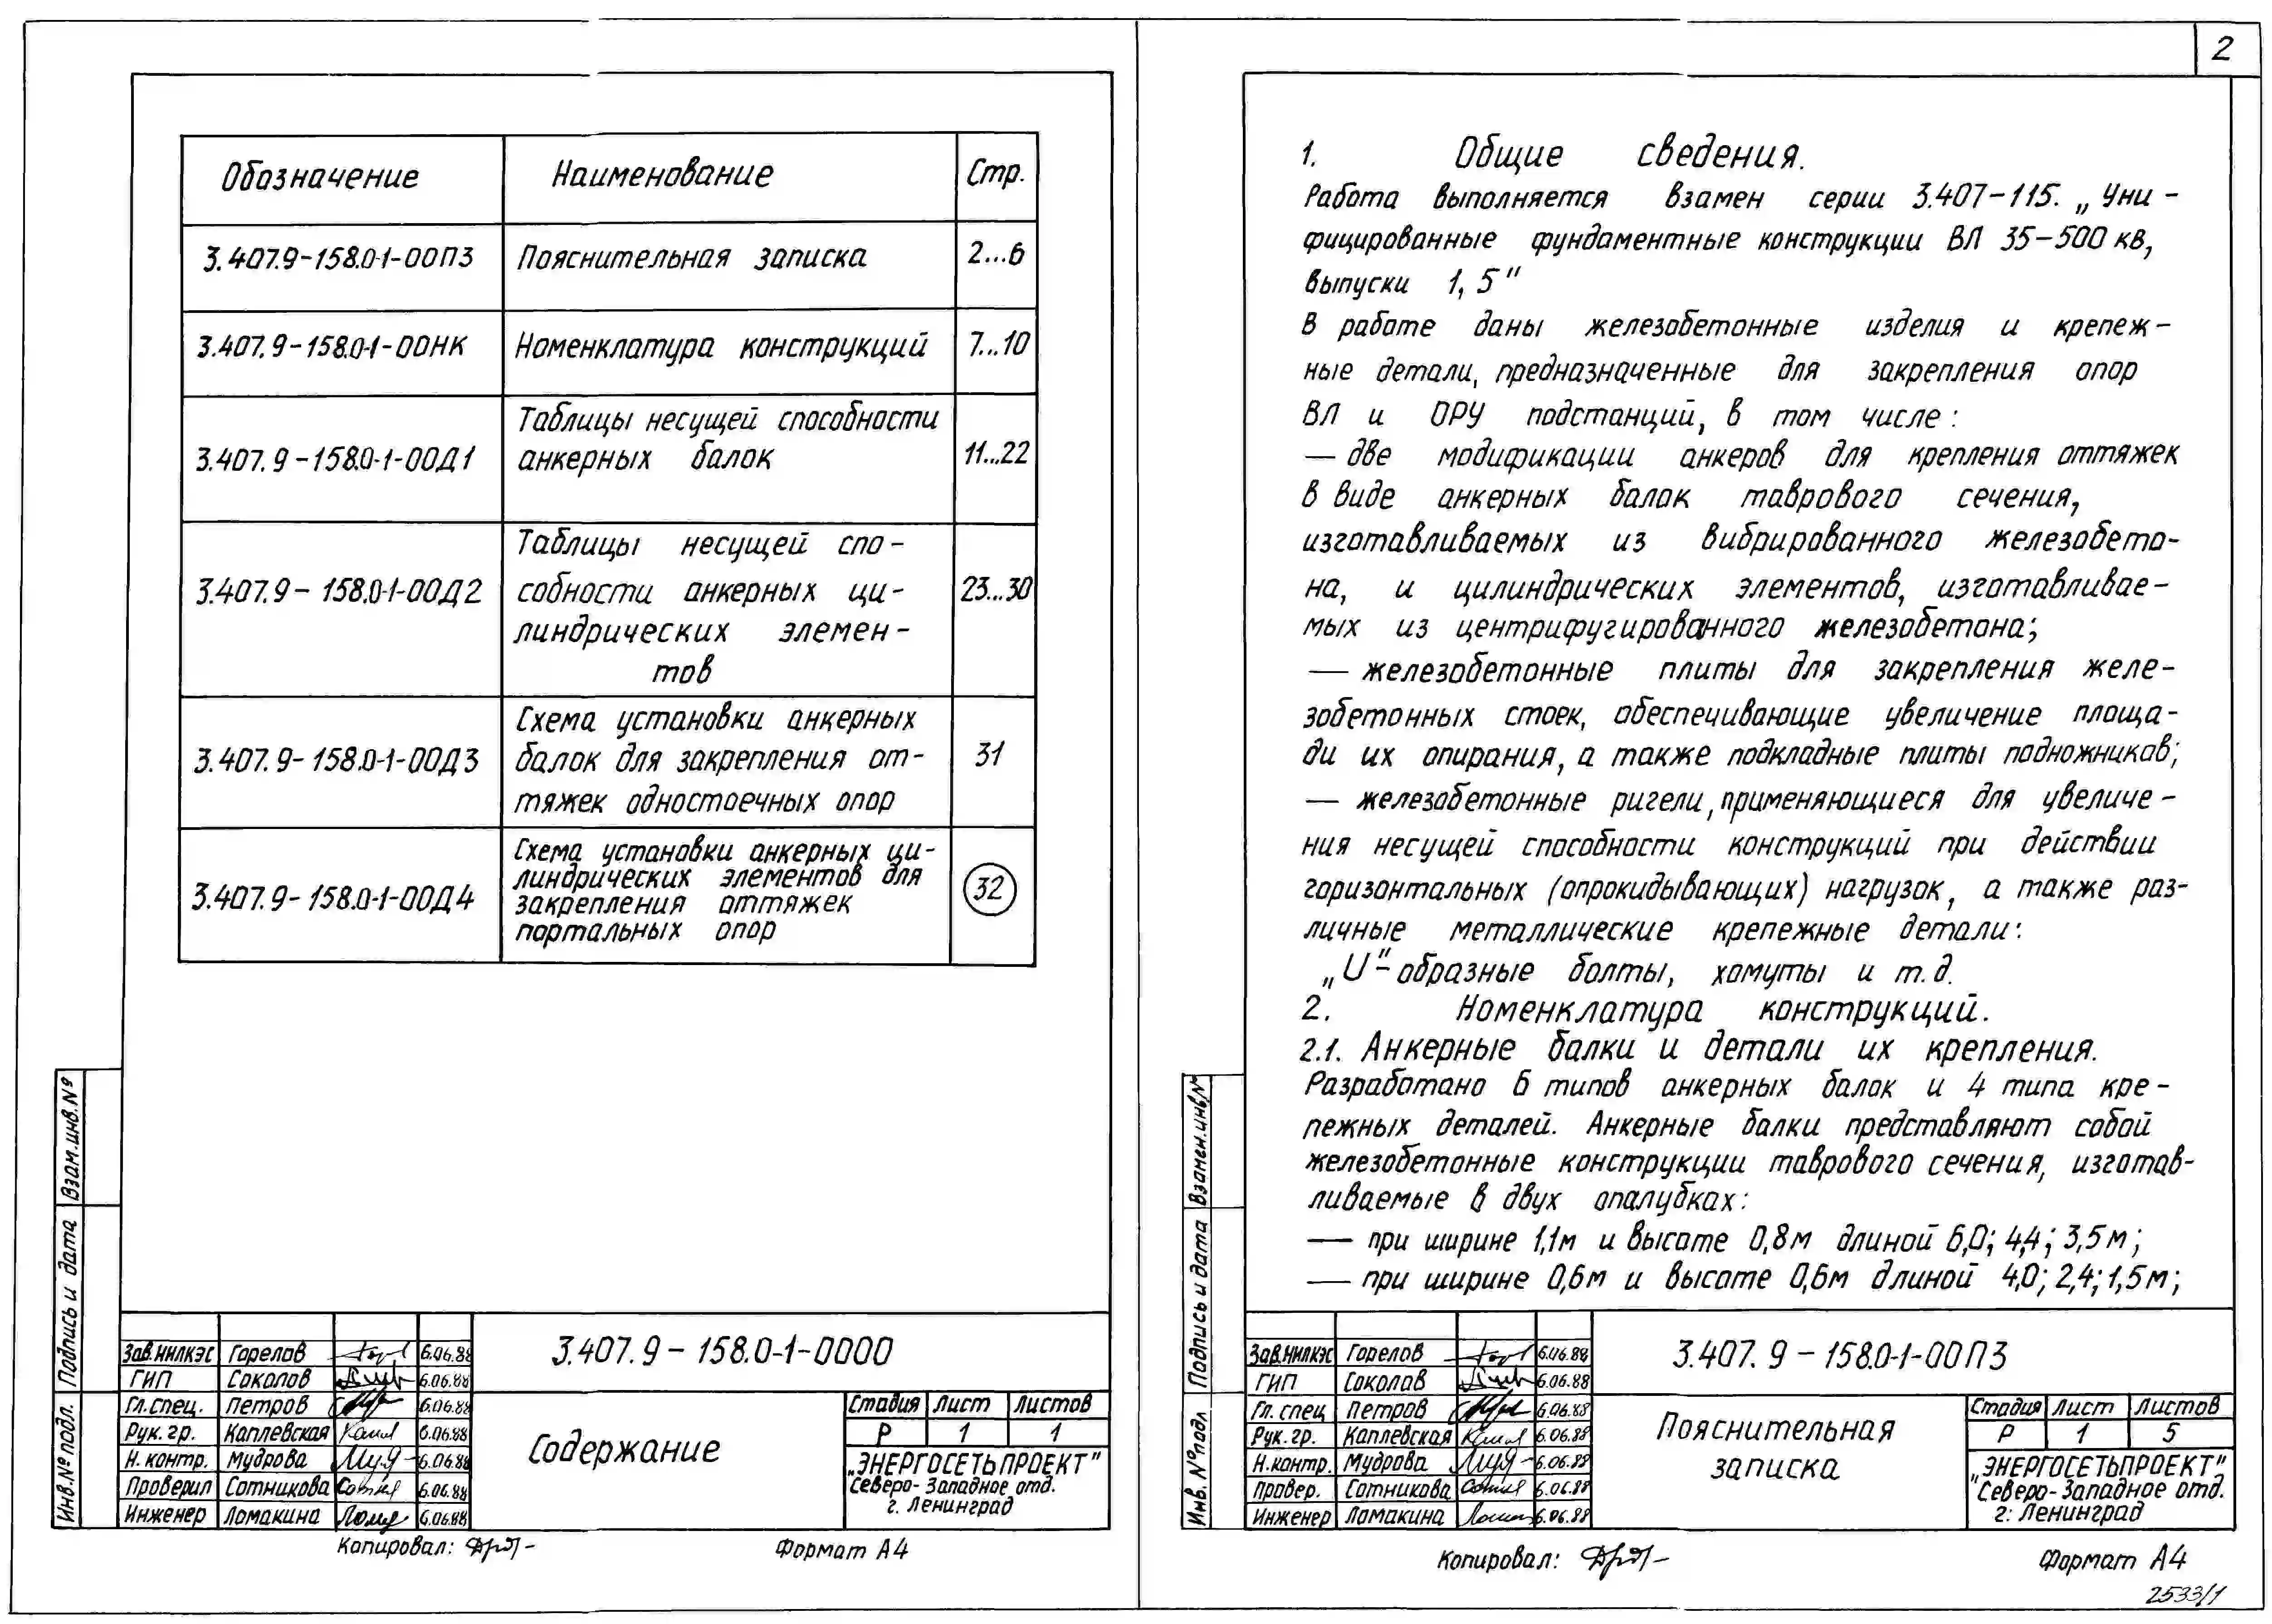 Обозначение Наименование Стр.
3.407.9-158.0-1-00ПЗ Пояснительная записка 2...6
3.407.9-158.0-1-00НК Номенклатура конструкций 7...10
Таблицы несущей способности
3.407.9-158.0-1-00Д1 анкерных балок 11...22
Таблицы несущей спо-
3.407.9-158.0-1-00Д2 собности анкерных ци- 23...30
линдрических элемен-
тов
Схема установки анкерных
3.407.9-158.0-1-00Д3 балок для закрепления от- 31
тяжек одностоечных опор
Схема установки анкерных ци-
линдрических элементов для
3.407.9-158.0-1-00Д4 закрепления оттяжек 32
портальных опор
Взам.инв.№
Подпись и дата
Инв.№ подл.
Зав.НИЛКЭС Горелов 6.06.88
ГИП Соколов 6.06.88
Гл.спец. Петров 6.06.88
Рук.гр. Каплевская 6.06.88
Н.контр. Мудрова 6.06.88
Проверил Сотникова 6.06.88
Инженер Ломакина 6.06.88
3.407.9-158.0-1-0000
Содержание
Стадия Лист Листов
Р 1 1
„ЭНЕРГОСЕТЬПРОЕКТ"
Северо-Западное отд.
г. Ленинград
Копировал:
Формат А4
2
1. Общие сведения.
Работа выполняется взамен серии 3.407-115. „Уни-
фицированные фундаментные конструкции ВЛ 35-500 кВ,
выпуски 1, 5"
В работе даны железобетонные изделия и крепеж-
ные детали, предназначенные для закрепления опор
ВЛ и ОРУ подстанций, в том числе:
— две модификации анкеров для крепления оттяжек
в виде анкерных балок таврового сечения,
изготавливаемых из вибрированного железобето-
на, и цилиндрических элементов, изготавливае-
мых из центрифугированного железобетона;
— железобетонные плиты для закрепления желе-
зобетонных стоек, обеспечивающие увеличение площа-
ди их опирания, а также подкладные плиты подножников;
— железобетонные ригели, применяющиеся для увеличе-
ния несущей способности конструкций при действии
горизонтальных (опрокидывающих) нагрузок, а также раз-
личные металлические крепежные детали:
„U"-образные болты, хомуты и т.д.
2. Номенклатура конструкций.
2.1. Анкерные балки и детали их крепления.
Разработано 6 типов анкерных балок и 4 типа кре-
пежных деталей. Анкерные балки представляют собой
железобетонные конструкции таврового сечения, изготав-
ливаемые в двух опалубках:
— при ширине 1,1м и высоте 0,8м длиной 6,0; 4,4; 3,5м;
— при ширине 0,6м и высоте 0,6м длиной 4,0; 2,4; 1,5м;
Взамен.инв.№
Подпись и дата
Инв. № подл
Зав.НИЛКЭС Горелов 6.06.88
ГИП Соколов 6.06.88
Гл. спец Петров 6.06.88
Рук. гр. Каплевская 6.06.88
Н.контр. Мудрова 6.06.88
Провер. Сотникова 6.06.88
Инженер Ломакина 6.06.88
3.407.9-158.0-1-00ПЗ
Пояснительная
записка
Стадия Лист Листов
Р 1 5
„ЭНЕРГОСЕТЬПРОЕКТ"
Северо-Западное отд.
г. Ленинград
Копировал:
Формат А4
2533/1